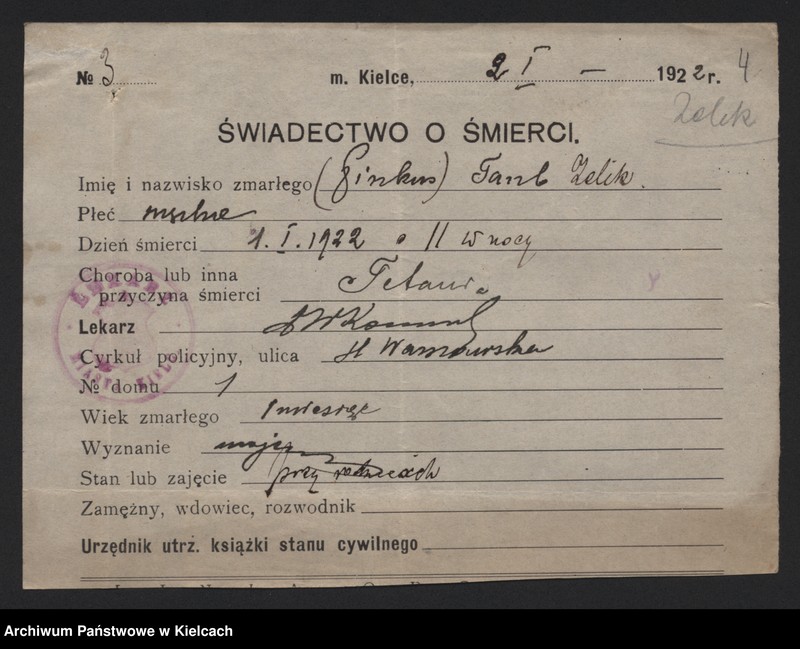 № 3 m. Kielce, 2 I — 1922 r. 4
Zelik
ŚWIADECTWO O ŚMIERCI.
Imię i nazwisko zmarłego (Pinkus) Zelik.
Płeć męskie
Dzień śmierci 1. I. 1922 o 11 w nocy
Choroba lub inna
przyczyna śmierci
Lekarz
Cyrkuł policyjny, ulica H Warszawska
№ domu 1
Wiek zmarłego 1 miesiąc
Wyznanie mojż
Stan lub zajęcie przy rodzicach
Zamężny, wdowiec, rozwodnik
Urzędnik utrz. książki stanu cywilnego
Archiwum Państwowe w Kielcach